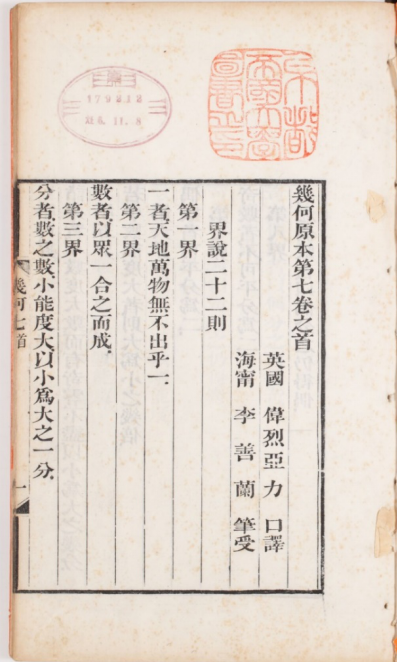 幾何原本第七卷之首
英國 偉烈亞力 口譯
海甯 李善蘭 筆受
界說二十二則
第一界
一者天地萬物無不出乎一.
第二界
數者以眾一合之而成.
第三界
分者數之數小能度大以小爲大之一分.
幾何七首
一
京都帝國大學圖書之印
179212